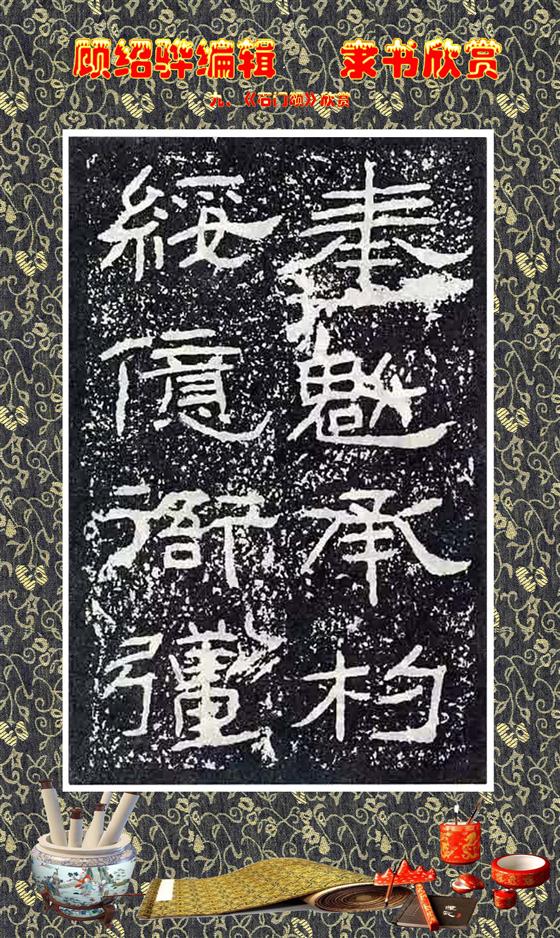 顾绍骅编辑 隶书欣赏
九、《石门颂》欣赏
奉魁承杓
綏億衙彊